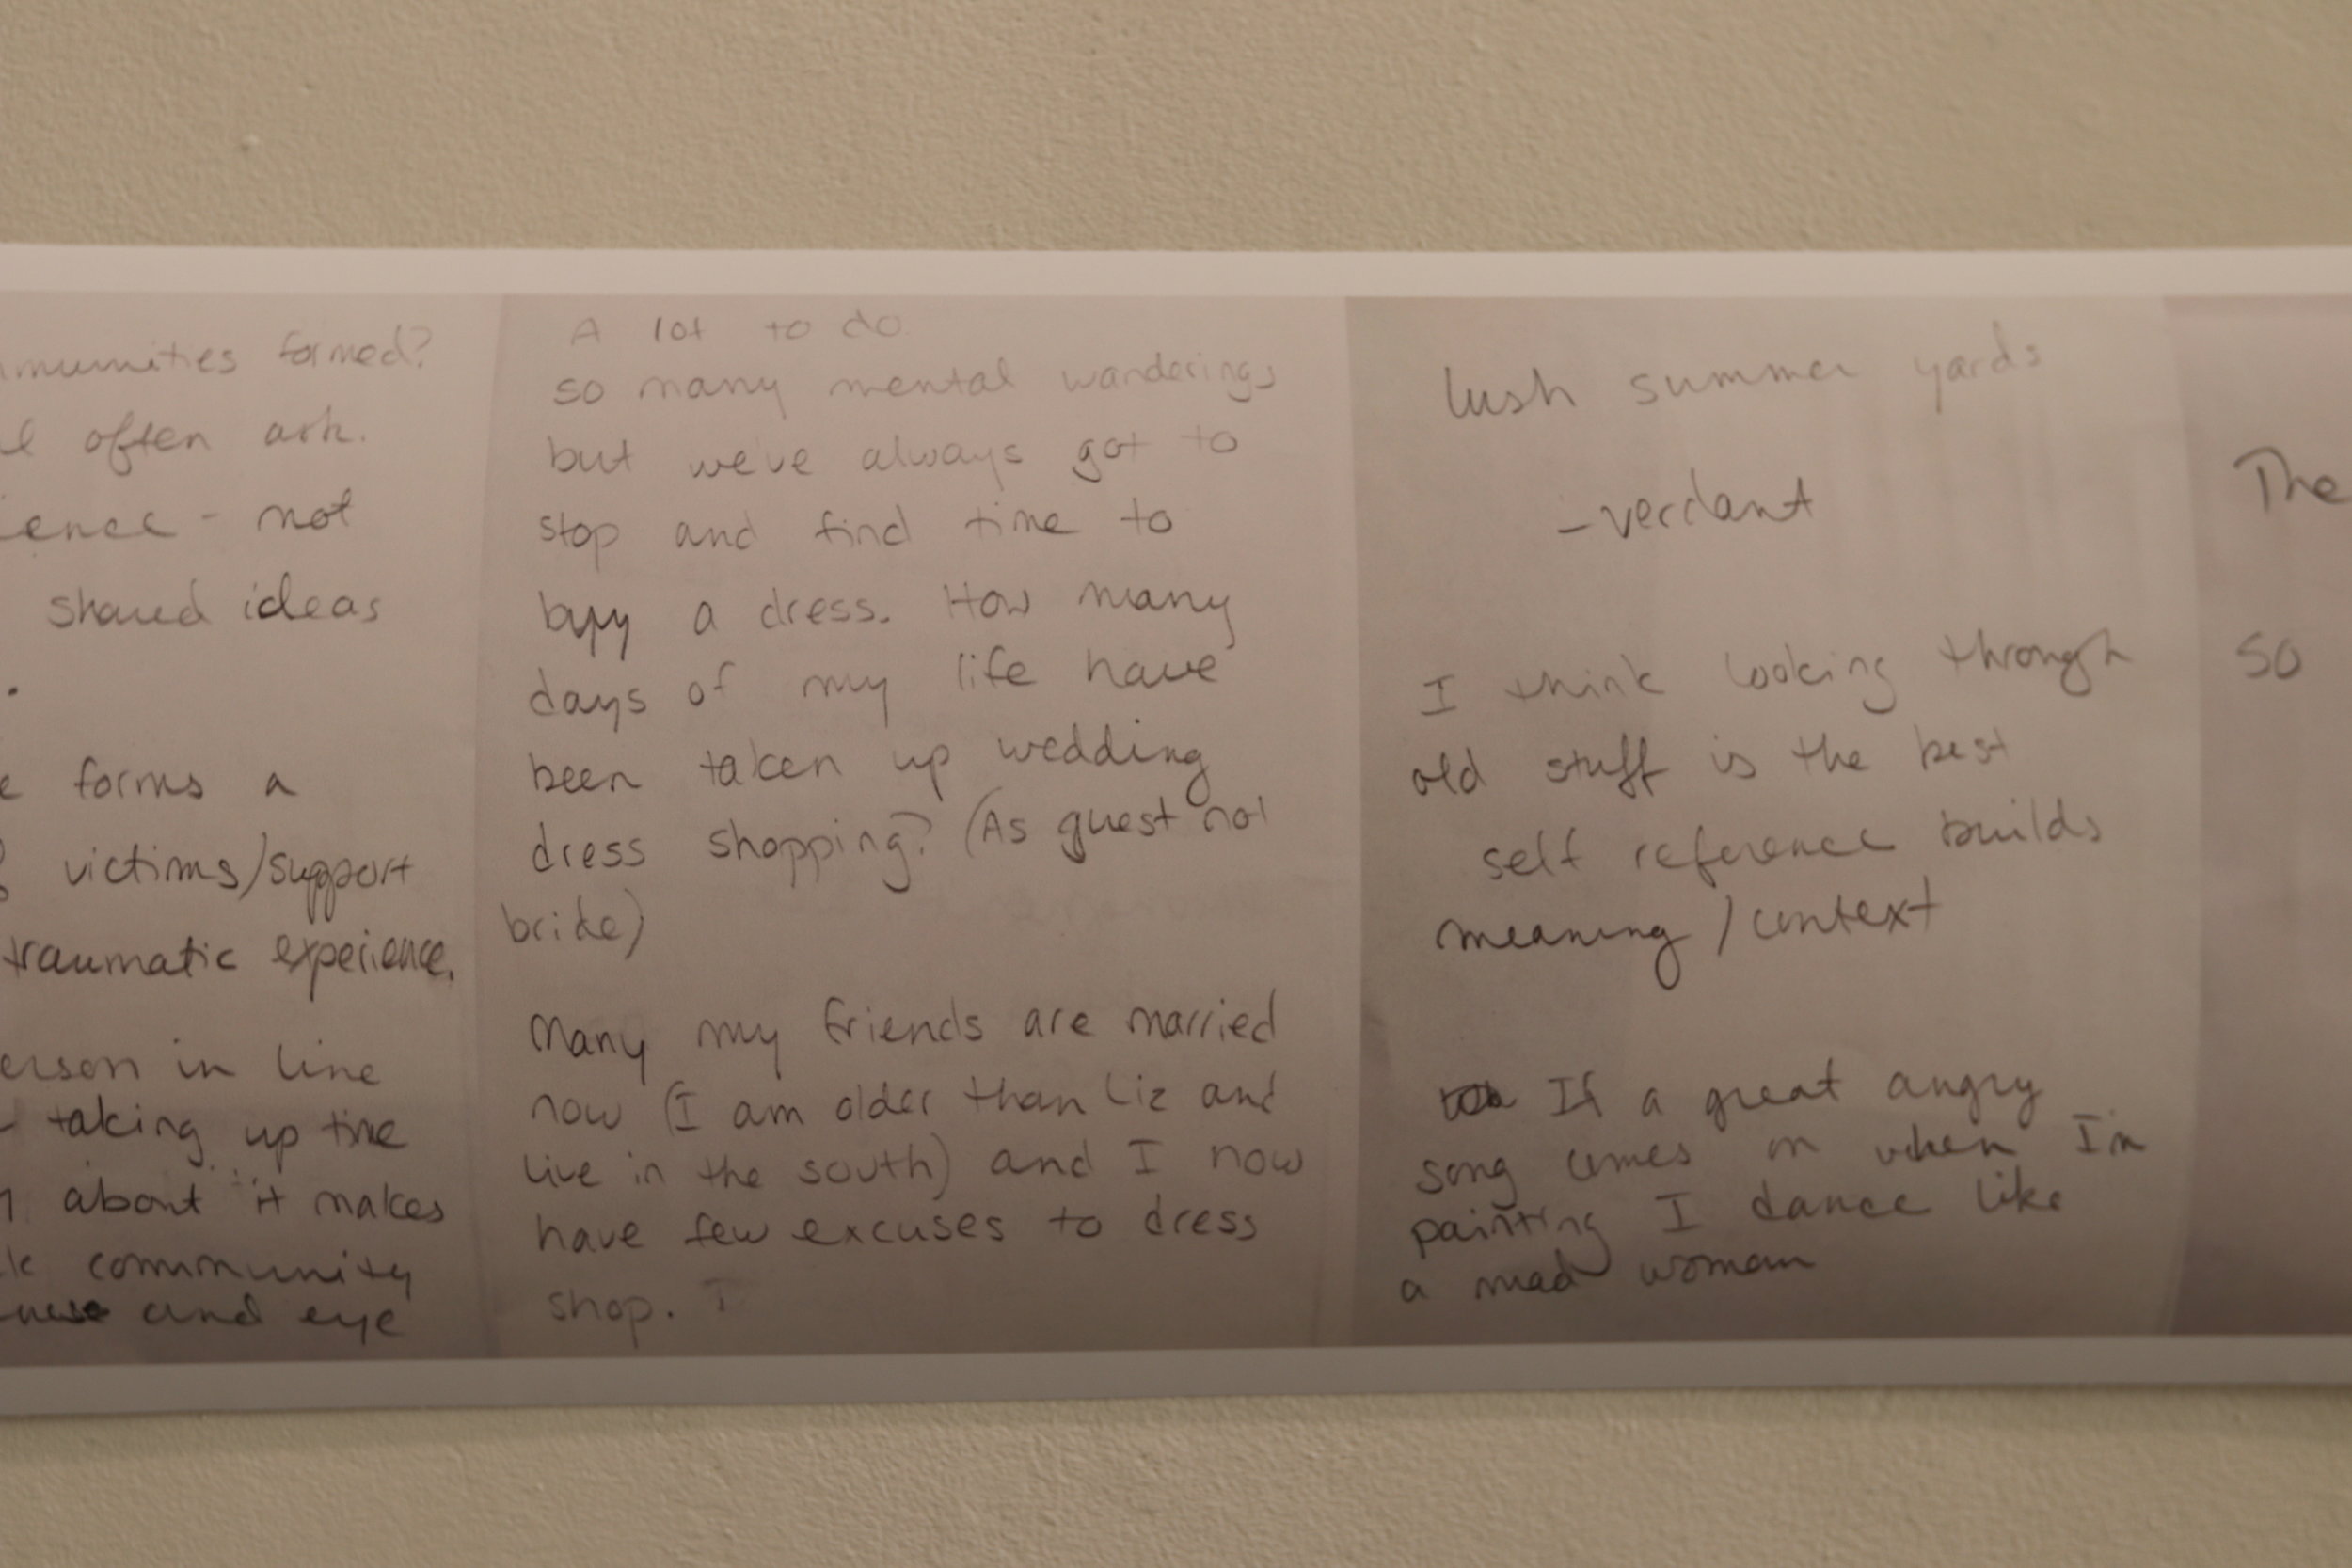 formed?
often ask.
not
shared ideas
forms a
victims/support
traumatic experience.
in line
taking up time
about it makes
community
and eye
A lot to do
so many mental wanderings
but we've always got to
stop and find time to
buy a dress. How many
days of my life have
been taken up wedding
dress shopping? (As guest not
bride)
Many my friends are married
now (I am older than Liz and
live in the south) and I now
have few excuses to dress
shop. I
lush summer yards
-verdant
I think looking through
old stuff is the best
self reference builds
meaning / context
If a great angry
song comes on when I'm
painting I dance like
a mad woman
The
so